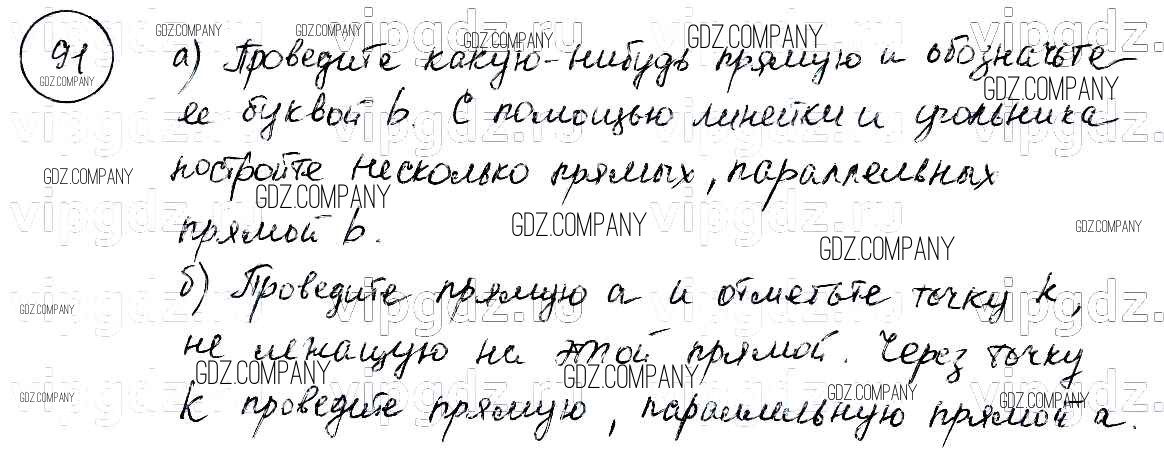 91
а) Проведите какую-нибудь прямую и обозначьте
ее буквой b. С помощью линейки и угольника
постройте несколько прямых, параллельных
прямой b.
б) Проведите прямую a и отметьте точку k,
не лежащую на этой прямой. Через точку
k проведите прямую, параллельную прямой a.
GDZ.COMPANY
vipgdz.ru